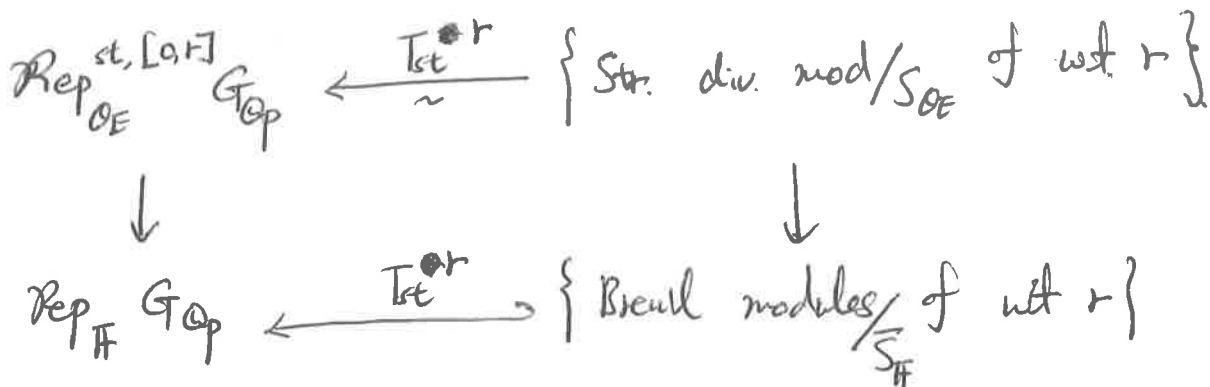 Rep_{O_E}^{st,[0,r]} G_{Q_p} ⟵^{T_{st}^{r}}_{~} { Str. div. mod/S_{O_E} of wt. r }
↓ ↓
Rep_F G_{Q_p} ⟵^{T_{st}^{r}} { Breuil modules/\bar{S}_F of wt r }